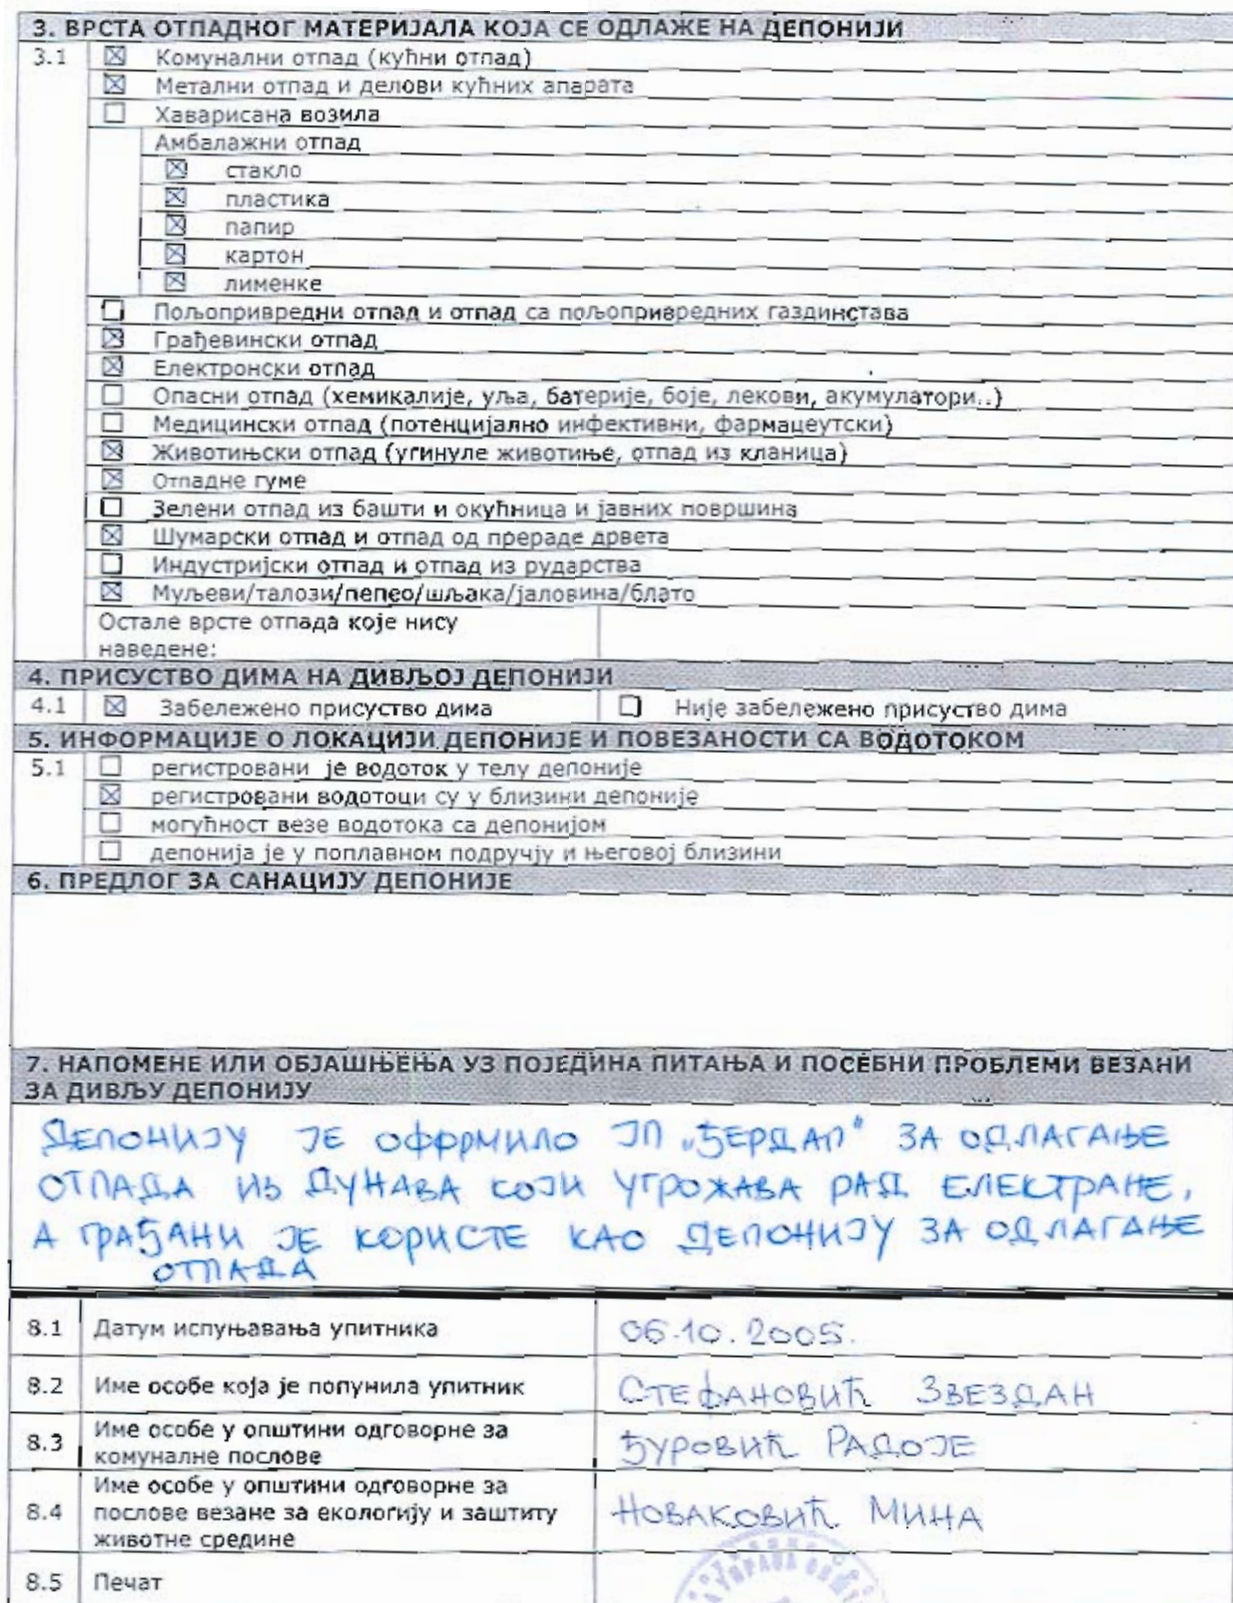 3. ВРСТА ОТПАДНОГ МАТЕРИЈАЛА КОЈА СЕ ОДЛАЖЕ НА ДЕПОНИЈИ
3.1 ☒ Комунални отпад (кућни отпад)
☒ Метални отпад и делови кућних апарата
☐ Хаварисана возила
Амбалажни отпад
☒ стакло
☒ пластика
☒ папир
☒ картон
☒ лименке
☐ Пољопривредни отпад и отпад са пољопривредних газдинстава
☒ Грађевински отпад
☒ Електронски отпад
☐ Опасни отпад (хемикалије, уља, батерије, боје, лекови, акумулатори..)
☐ Медицински отпад (потенцијално инфективни, фармацеутски)
☒ Животињски отпад (угинуле животиње, отпад из кланица)
☒ Отпадне гуме
☐ Зелени отпад из башти и окућница и јавних површина
☒ Шумарски отпад и отпад од прераде дрвета
☐ Индустријски отпад и отпад из рударства
☒ Муљеви/талози/пепео/шљака/јаловина/блато
Остале врсте отпада које нису
наведене:
4. ПРИСУСТВО ДИМА НА ДИВЉОЈ ДЕПОНИЈИ
4.1 ☒ Забележено присуство дима ☐ Није забележено присуство дима
5. ИНФОРМАЦИЈЕ О ЛОКАЦИЈИ ДЕПОНИЈЕ И ПОВЕЗАНОСТИ СА ВОДОТОКОМ
5.1 ☐ регистровани је водоток у телу депоније
☒ регистровани водотоци су у близини депоније
☐ могућност везе водотока са депонијом
☐ депонија је у поплавном подручју и његовој близини
6. ПРЕДЛОГ ЗА САНАЦИЈУ ДЕПОНИЈЕ
7. НАПОМЕНЕ ИЛИ ОБЈАШЊЕЊА УЗ ПОЈЕДИНА ПИТАЊА И ПОСЕБНИ ПРОБЛЕМИ ВЕЗАНИ
ЗА ДИВЉУ ДЕПОНИЈУ
ДЕПОНИЈУ ЈЕ ОФОРМИЛО ЈП „ЂЕРДАП" ЗА ОДЛАГАЊЕ
ОТПАДА ИЗ ДУНАВА КОЈИ УГРОЖАВА РАД ЕЛЕКТРАНЕ,
А ГРАЂАНИ ЈЕ КОРИСТЕ КАО ДЕПОНИЈУ ЗА ОДЛАГАЊЕ
ОТПАДА
8.1 Датум испуњавања упитника 06.10.2005.
8.2 Име особе која је попунила упитник СТЕФАНОВИЋ ЗВЕЗДАН
8.3 Име особе у општини одговорне за
комуналне послове ЂУРОВИЋ РАДОЈЕ
Име особе у општини одговорне за
8.4 послове везане за екологију и заштиту НОВАКОВИЋ МИНА
животне средине
8.5 Печат